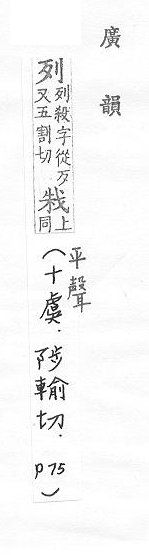 廣韻
列 列殺字從歹
又五割切 㦳上同
平聲
(十虞．陟輸切．p75)